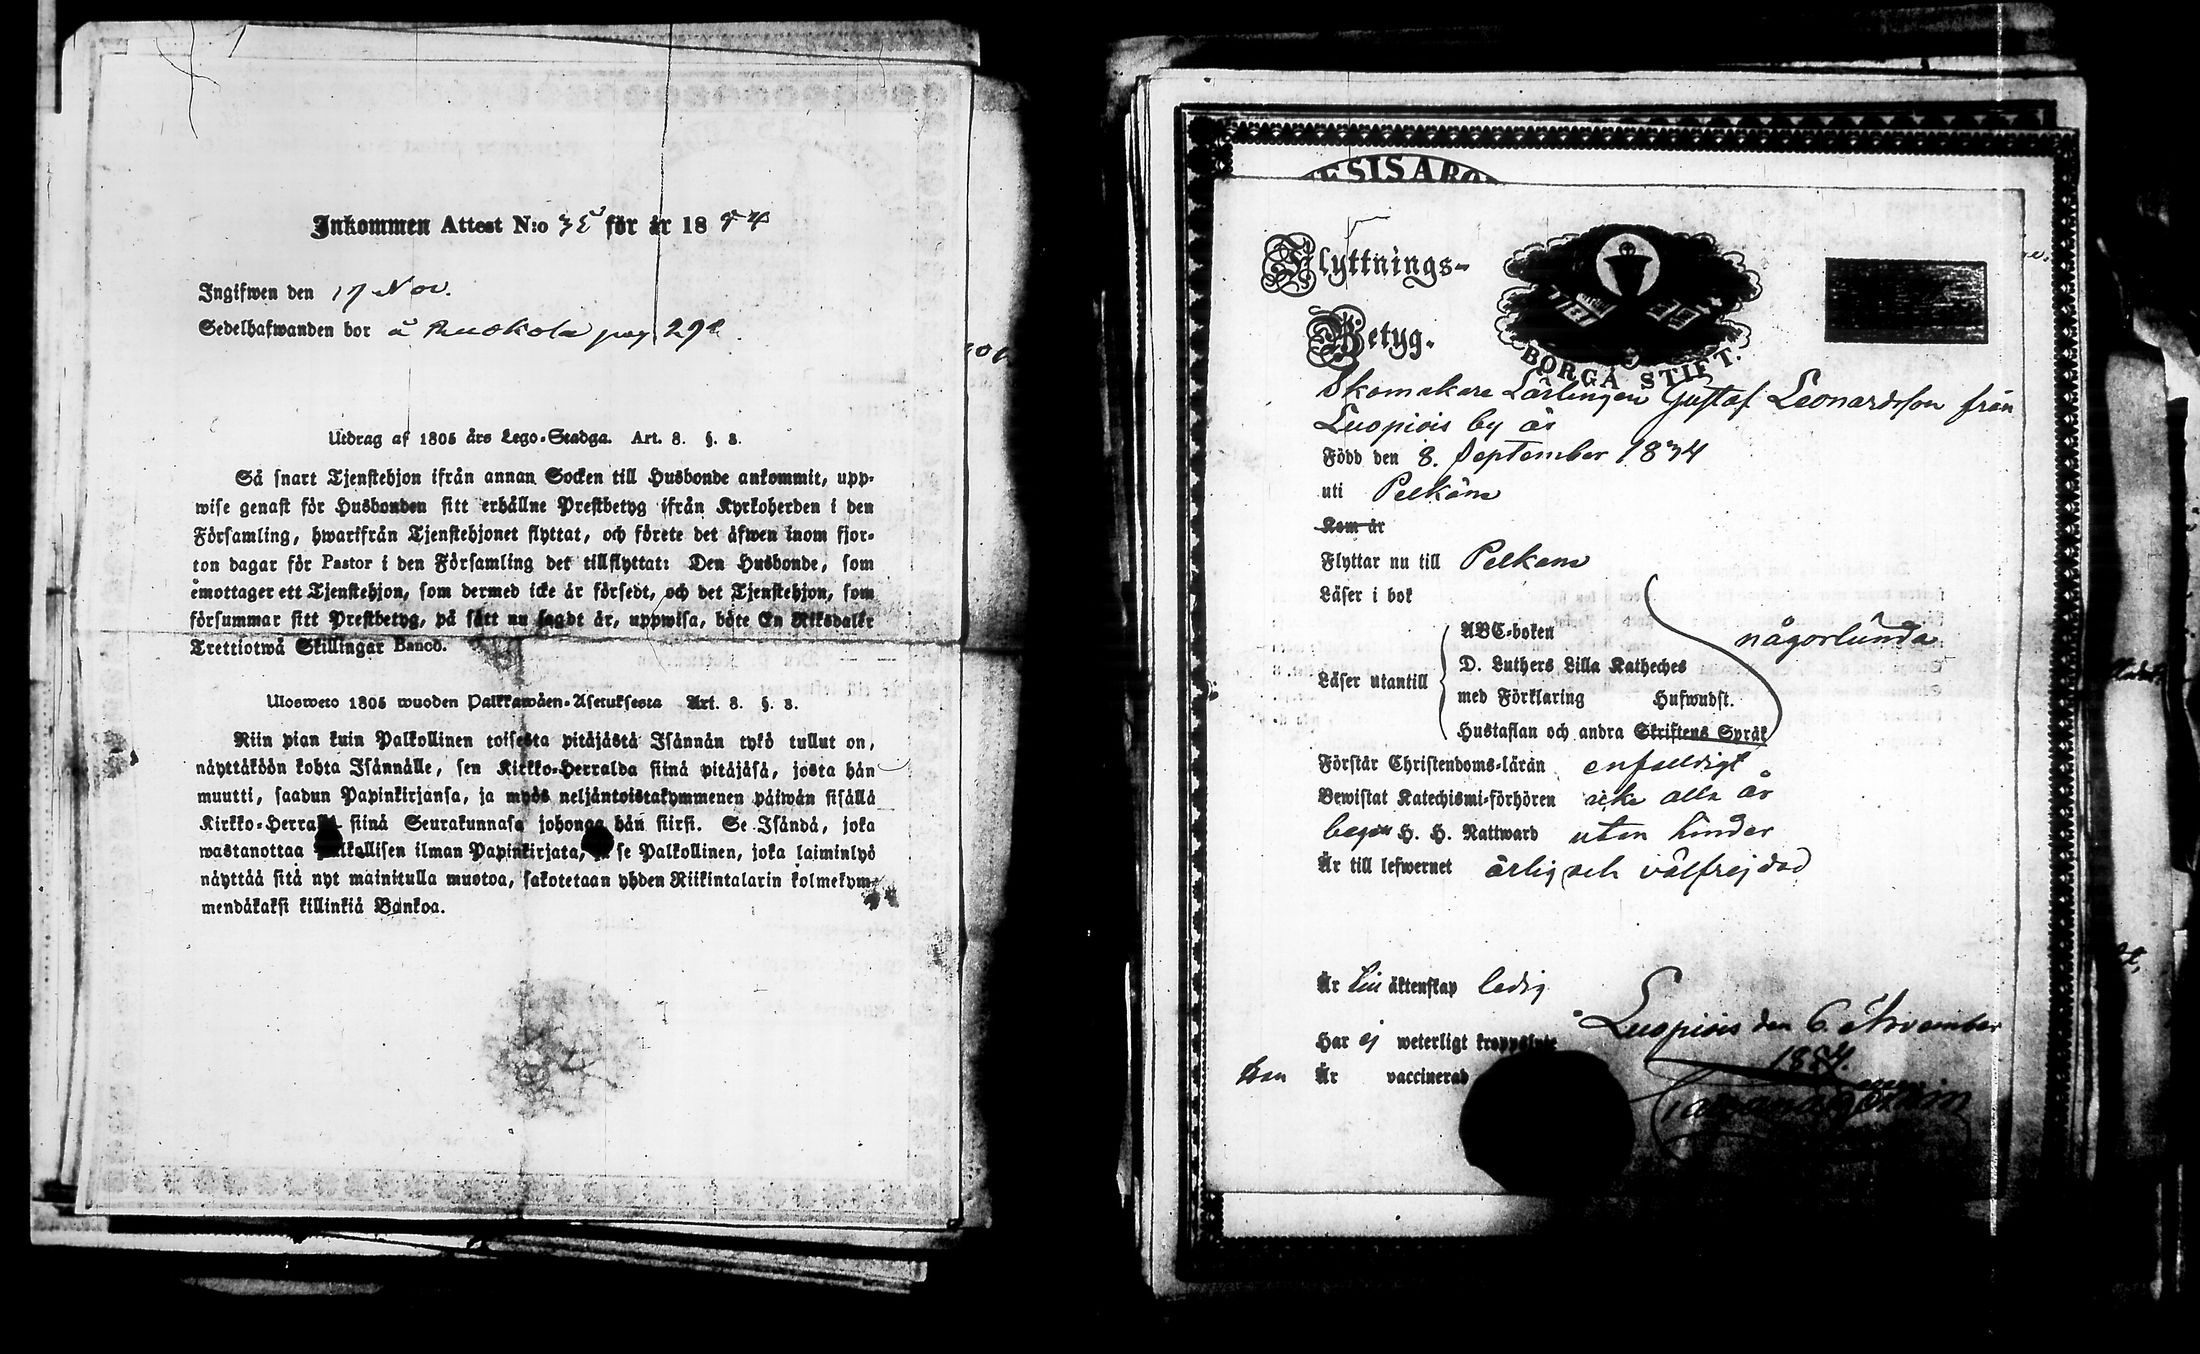 Inkommen Attest N:o 35 för år 1854
Ingifwen den 17 Nov.
Sedelhafwanden bor å Ruokola pag 292
Utdrag af 1805 års Lego-Stadga. Art. 8. §. 3.
Så snart Tjenstehjon ifrån annan Socken till Husbonde ankommit, upp-
wise genast för Husbonden sitt erhållne Prestbetyg ifrån Kyrkoherden i den
Församling, hwarifrån Tjenstehjonet flyttat, och förete det äfwen inom fjor-
ton dagar för Pastor i den Församling det tillflyttat: Den Husbonde, som
emottager ett Tjenstehjon, som dermed icke är försedt, och det Tjenstehjon, som
försummar sitt Prestbetyg, på sätt nu sagdt är, uppwisa, böte En Riksdaler
Trettiotwå Skillingar Banco.
Ulosweto 1805 wuoden Palkkawäen-Asetuksesta Art. 8. §. 3.
Niin pian kuin Palkollinen toisesta pitäjästä Isännän tykö tullut on,
näyttäköön kohta Isännälle, sen Kirkko-Herralda siinä pitäjäsä, josta hän
muutti, saadun Papinkirjansa, ja myös neljäntoistakymmenen päiwän sisällä
Kirkko-Herralle siinä Seurakunnasa johonga hän siirsi. Se Isändä, joka
wastanottaa Palkollisen ilman Papinkirjata, ja se Palkollinen, joka laiminlyö
näyttää sitä nyt mainitulla muotoa, sakotetaan yhden Riikintalarin kolmekym-
mendäkaksi killinkiä Bankoa.
ESIS ABO
Flyttnings-
Betyg.
BORGÅ STIFT.
Skomakare Lärlingen Gustaf Leonardsson från
Luopiois by är
Född den 8. September 1834
uti Pelkäne
Kom år
Flyttar nu till Pelkane
Läser i bok
ABC-boken
någorlunda
D. Luthers Lilla Katheches
Läser utantill
med Förklaring Hufwudst.
Hustaflan och andra Skriftens Språk
Förstår Christendoms-läran enfaldigt
Bewistat Katechismi-förhören icke alla år
begår H. H. Nattward uten hinder
Är till lefwernet ärlig och välfrejdad
Är till äktenskap ledig
Luopiois den 6. November
1854.
Har ej weterligt kroppslyte
Är vaccinerad